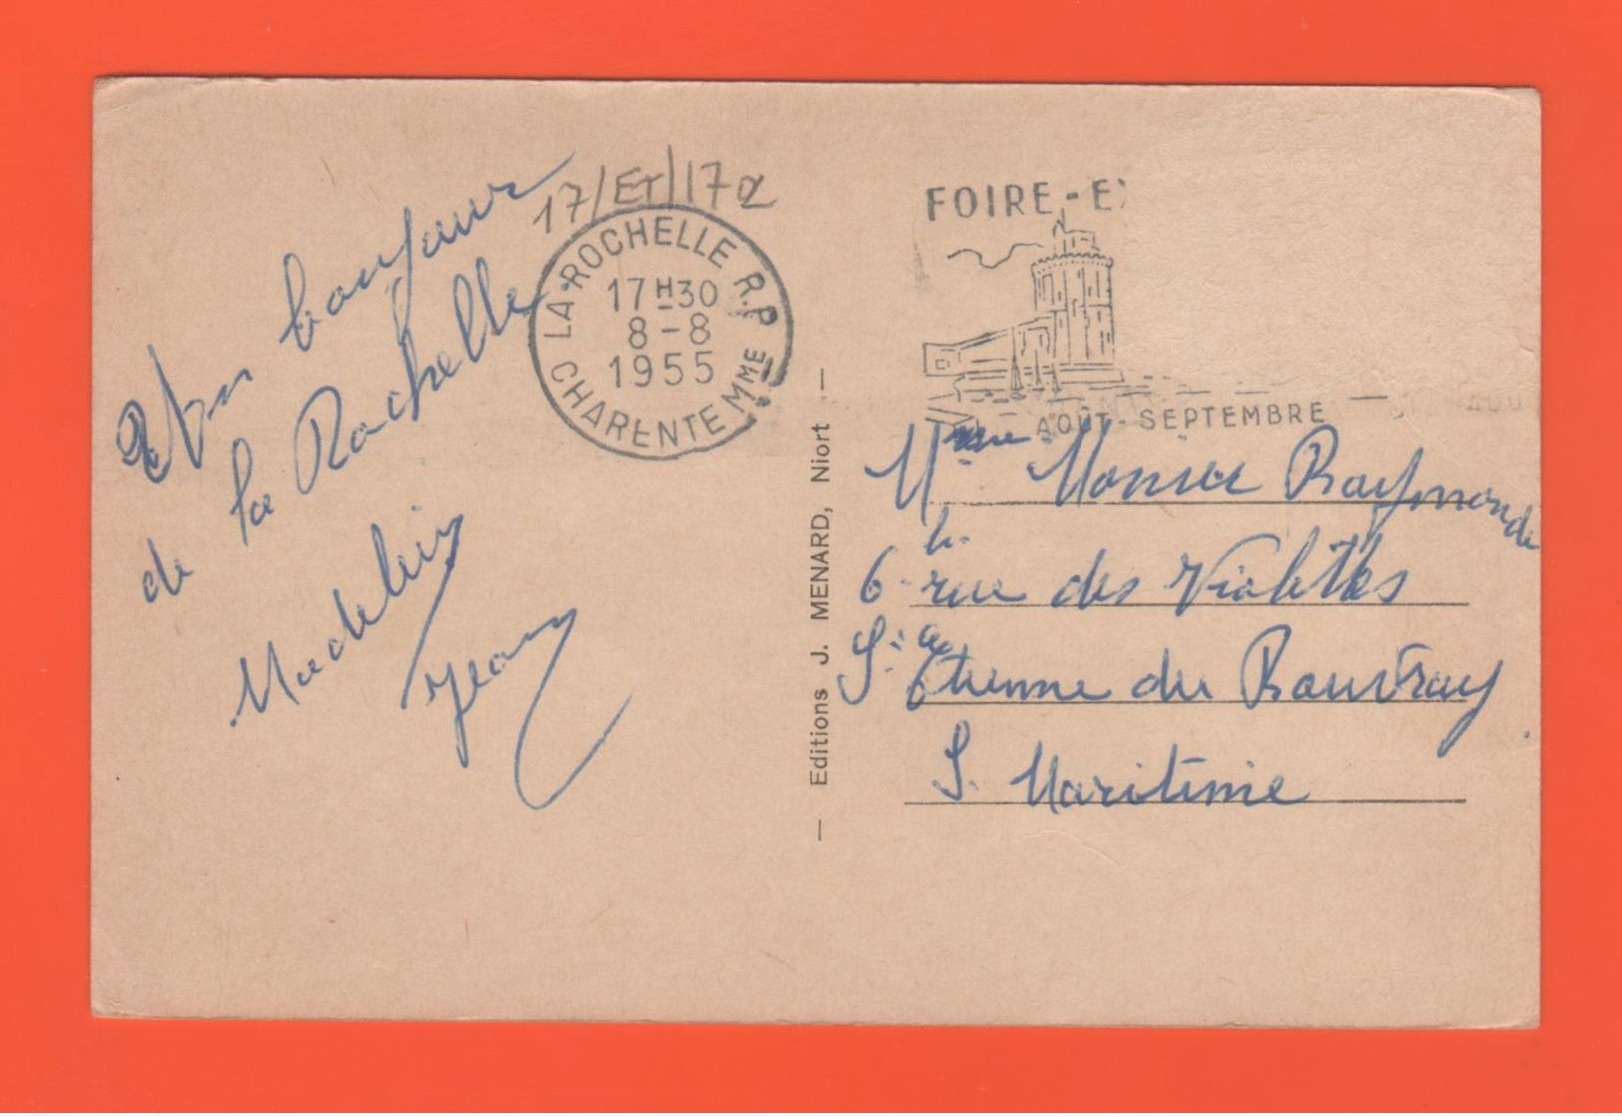 17/Et/17a
bonjour
de la Rochelle
Jean
LA ROCHELLE R.P
17H30
8-8
1955
CHARENTE MME
— Editions J. MENARD, Niort —
FOIRE-E
AOÛT-SEPTEMBRE
Mme Raymonde
6 rue des Violettes
St Etienne du Rouvray
S. Maritime